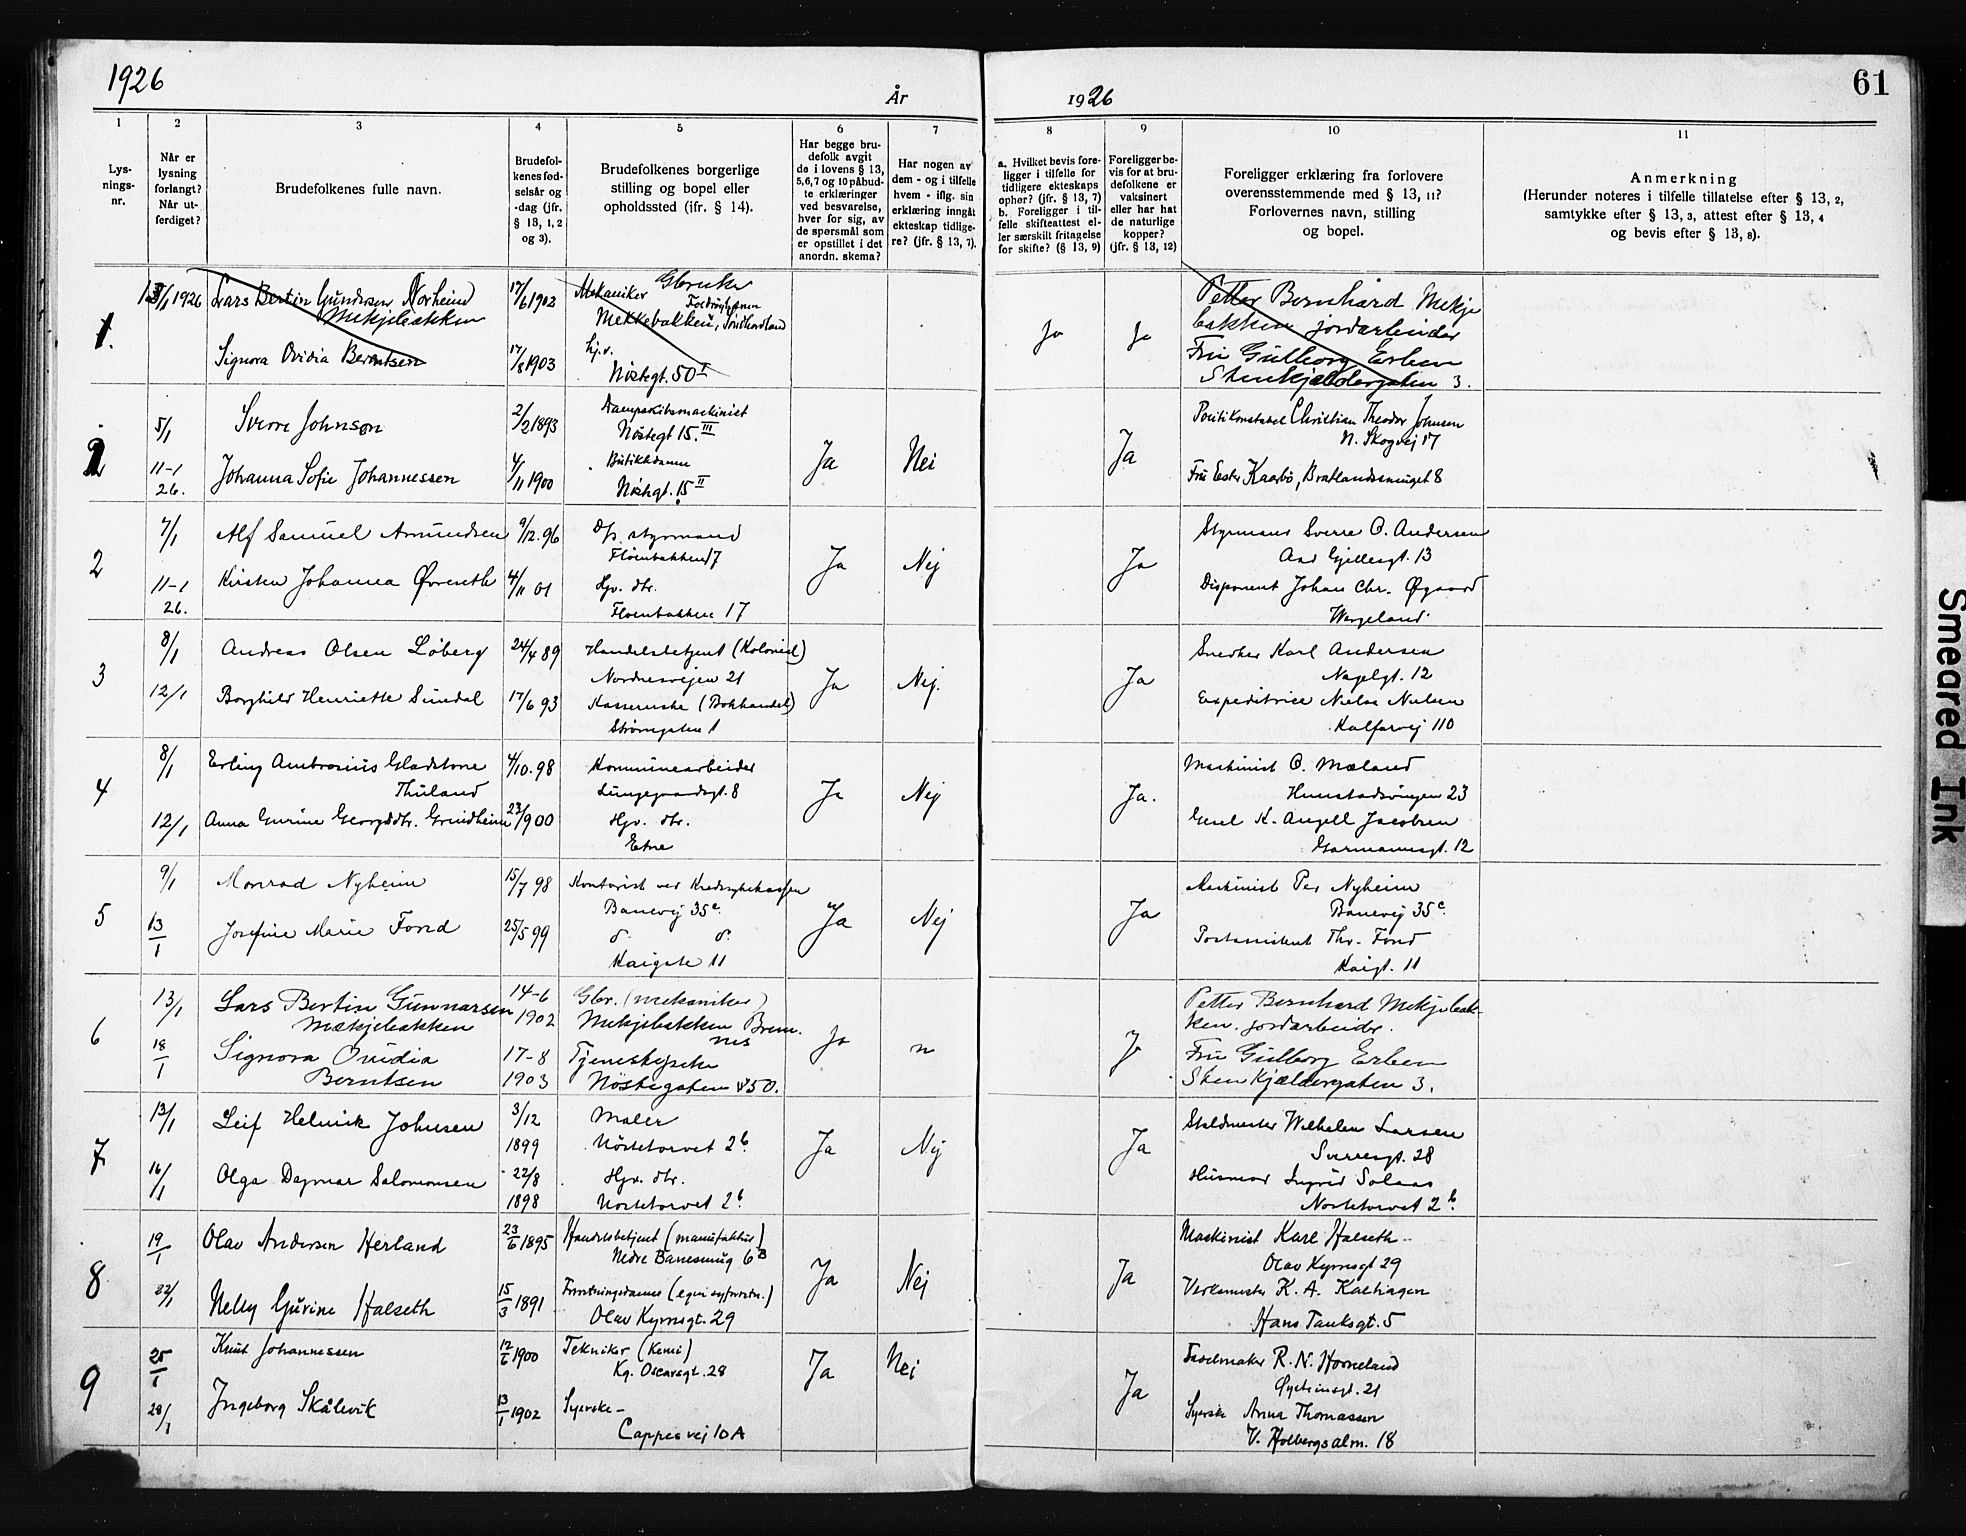 1926
År
1926
61
1
2
3
4
5
6
7
8
9
10
11
Lys-
nings-
nr.
Når er
lysning
forlangt?
Når ut-
ferdiget?
Brudefolkenes fulle navn.
Brudefol-
kenes fød-
selsår og
-dag (jfr.
§ 13, 1, 2
og 3).
Brudefolkenes borgerlige
stilling og bopel eller
opholdssted (ifr. § 14).
Har begge bru-
defolk avgit
de i lovens § 13,
5,6,7 og 10 påbud-
te erklæringer
ved besvarelse,
hver for sig, av
de spørsmål som
er opstillet i det
anordn. skema?
Har nogen av
dem - og i tilfelle
hvem - iflg. sin
erklæring inngått
ekteskap tidlige-
re? (jfr. § 13, 7).
a. Hvilket bevis fore-
ligger i tilfelle for
tidligere ekteskaps
ophør? (jfr. § 13, 7)
b. Foreligger i til-
felle skifteattest el-
ler særskilt fritagelse
for skifte? (§ 13, 9)
Foreligger be-
vis for at bru-
defolkene er
vaksinert
eller har hat
de naturlige
kopper?
(jfr. § 13, 12)
Foreligger erklæring fra forlovere
overensstemmende med § 13, 11?
Forlovernes navn, stilling
og bopel.
Anmerkning
(Herunder noteres i tilfelle tillatelse efter § 13, 2,
samtykke efter § 13, 3, attest efter § 13, 4
og bevis efter § 13, 8).
1.
/1 1926
Lars Bertin Gundersen Norheim
Mekjebakken
17/6 1902
Mekaniker Gbruker
Mekkebakken, Søndhordland
Signora Ovidia Berntsen
17/8 1903
hj.v.
Nøstegt. 50 I
Ja
Ja
Petter Bernhard Mekje
bakken jordarbeider
Fru Gulborg Erben
Stenkjældergaten 3.
5/1
Sverre Johnson
2/2 1893
Dampskibsmaskinist
Nøstegt 15. III
11-1
26.
Johanna Sofie Johannessen
4/11 1900
Butikkdame
Nøstegt. 15 II
Ja
Nei
Ja
Politikonstabel Christian Theodor Johnsen
N. Skogvej 17
Fru Ester Kaarbø, Bratlandssmuget 8
2
7/1
Alf Samuel Amundsen
9/12.96
D/s. styrmand
Fløenbakken 17
11-1
26.
Kirsten Johanna
4/11 01
Hjv. dtr.
Fløenbakken 17
Ja
Nej
Ja
Styrmann Sverre C. Andersen
13
Disponent Johan Chr. Øgaard
Wergeland
3
8/1
Andreas Olsen Løberg
24/4 89
Handelsbetjent (Kolonial)
Nordnesvejen 21
12/1
Borghild Henriette Sundal
17/6 93
Kassererske (Bokhandel)
Strømgaten 1
Ja
Nej.
Ja
Snedker Karl Andersen
Nagelgt. 12
Expeditrice Nielsen
Kalfarvej 110
4
8/1
Erling Ambrosius Gladstone
Thuland
4/10.98
Kommunearbeider
Lungegaardsgt. 8
12/1
Anna Gurine Georgsdtr. Grindheim
23/9 00
Hjv. dtr.
Etne
Ja
Nej
Ja.
Maskinist O. Mæland
23
K. Angell Jacobsen
Gormsgt. 12
5
9/1
Monrad Nyheim
15/7 98
Kontorist ved Kredsykekassen
Banevej 35c.
13/1
Josefine Marie Fond
25/5 99
d. d.
Kaigate 11
Ja
Nej
Ja
Maskinist Per Nyheim
Banevej 35c.
Postassistent Thr. Fond
Kaigt. 11
6
13/1
Lars Bertin Gunnarsen
Mækjebakken
14-6
1902
Gbr. (mekaniker)
Mekjebakken Brem-
nes
18/1
Signora Ovidia
Berntsen
17-8
1903
Tjenestepike
Nöstegaten 50.
Ja
n
J
Petter Bernhard Mekjebak-
ken. jordarbeider.
Fru Gulborg Erben
Sten Kjældergaten 3.
7
13/1
Leif Helmik Johnsen
3/12
1899
Maler
Nöstetorvet 2b.
16/1
Olga Dagmar Salomonsen
22/8
1898
Hjv. dtr.
Nöstetorvet 2b.
Ja
Nej
Ja
Staldmester Wilhelm Larsen
Sverresgt. 28
Husmor Ingrid Solaas
Nöstetorvet 2b.
8
19/1
Olav Andersen Herland
23/6 1895
Handelsbetjent (manufaktur)
Nedre Banesmug 6B
22/1
Nelly Gurine Halseth
15/3 1891
Olav Kyrresgt. 29
Ja
Nej
Ja
Maskinist Karl Halseth
Olav Kyrresgt 29
Verksmester K. A. Kalhagen
Hans Tanksgt. 5
9
25/1
Knut Johannessen
12/6 1900
Tekniker (Kemi)
Kg. Oscarsgt. 28
28/1
Ingeborg Skålevik
13/1 1902
Syerske –
Cappes vej 10A
Ja
Nei
Ja
Sadelmaker R. N. Horneland
Øysteinsgt. 21
Syerske Anna Thomassen
V. Holbergsalm. 18
Smeared Ink